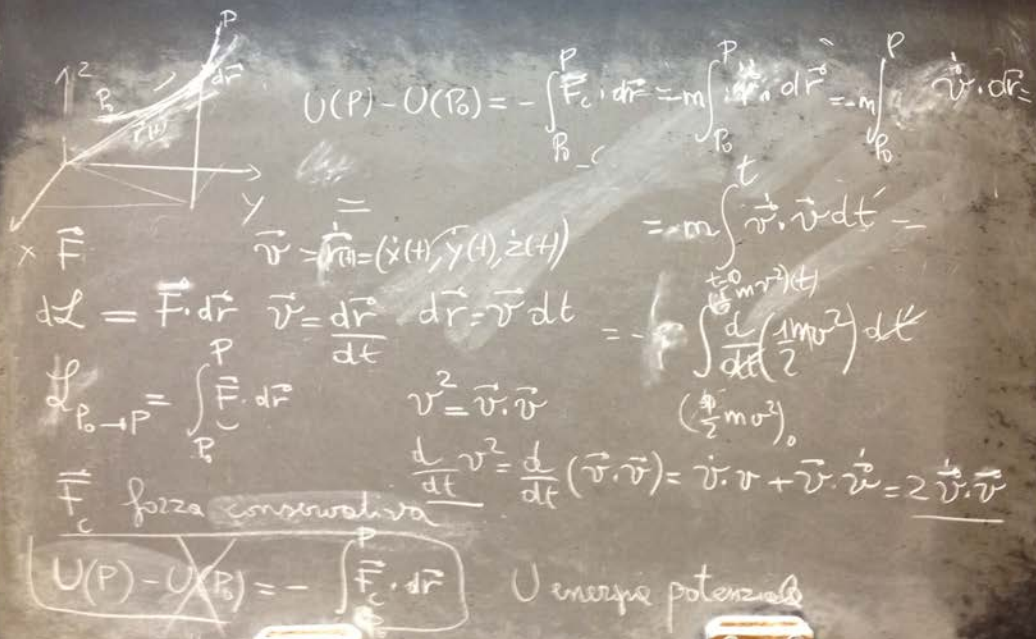 z P
P₀ dr⃗
r⃗(t)
y
x
U(P) - U(P₀) = - ∫_{P₀}^{P} F⃗_c · dr⃗ = m ∫_{P₀}^{P} dr⃗ = -m ∫_{P₀}^{P} v̇⃗ · dr⃗ =
=
F⃗ v⃗ = ṙ⃗(t) = (ẋ(t), ẏ(t), ż(t)) = -m ∫_{t=0}^{t} v̇⃗ · v⃗ dt' =
dℒ = F⃗ · dr⃗ v⃗ = dr⃗/dt dr⃗ = v⃗ dt = - ∫_{(½mv²)₀}^{(½mv²)(t)} d/dt (½ mv²) dt'
ℒ_{P₀→P} = ∫_{P₀}^{P} F⃗ · dr⃗ v² = v⃗ · v⃗
d/dt v² = d/dt (v⃗ · v⃗) = v̇ · v + v⃗ · v̇⃗ = 2 v̇⃗ · v⃗
F⃗_c forza conservativa
U(P) - U(P₀) = - ∫_{P₀}^{P} F⃗_c · dr⃗ U energia potenziale